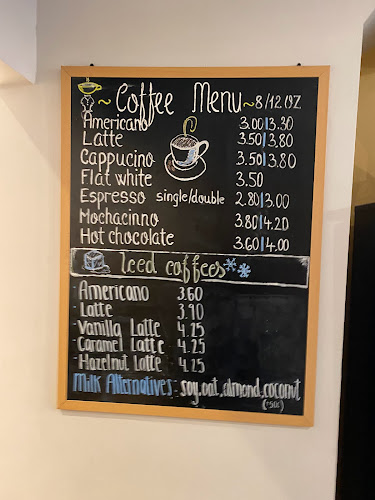 ~ Coffee Menu ~ 8/12 OZ
Americano 3.00|3.30
Latte 3.50|3.80
Cappucino 3.50|3.80
Flat white 3.50
Espresso single/double 2.80|3.00
Mochacinno 3.80|4.20
Hot chocolate 3.60|4.00
Iced coffees
- Americano 3.60
- Latte 3.90
- Vanilla Latte 4.25
- Caramel Latte 4.25
- Hazelnut Latte 4.25
Milk Alternatives: soy, oat, almond, coconut
(+50c)